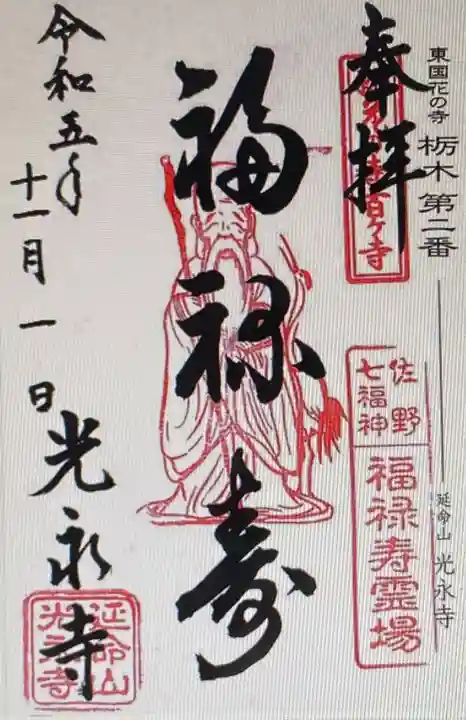 東国花の寺 栃木 第二番
延命山 光永寺
奉拝
東国花の寺百ヶ寺
佐野
七福神
福禄寿霊場
福禄寿
令和五年
十一月一日
光永寺
延命山
光永寺